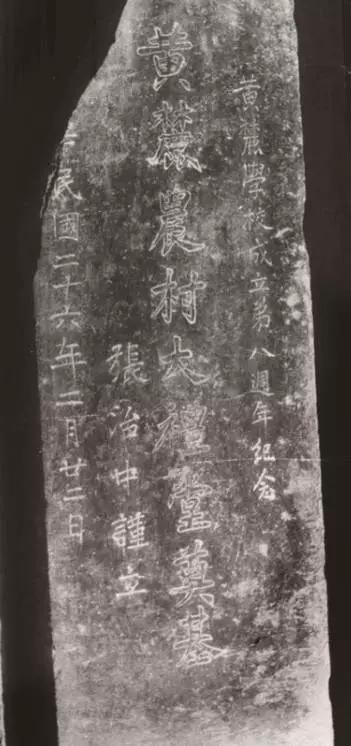 黃麓學校成立第八週年紀念
黃麓農村大禮堂奠基
張治中謹立
民國二十六年二月廿二日